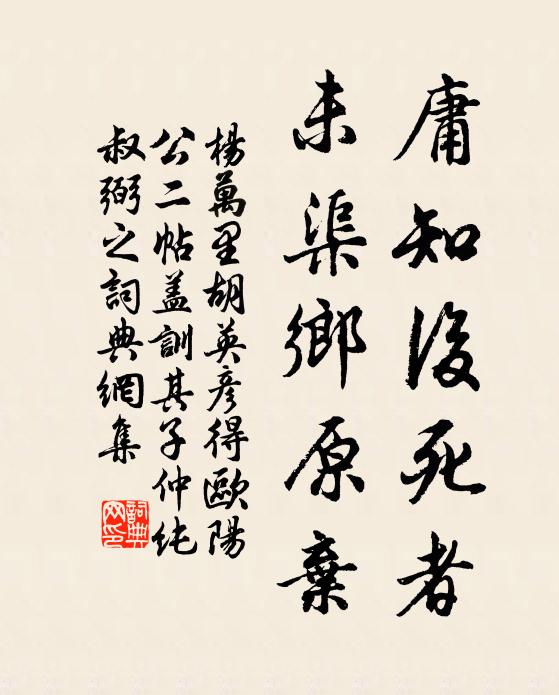 庸知後死者
未渠鄉原棄
楊萬里胡英彦得歐陽
公二帖蓋訓其子仲純
叔弼之詞典網集
詞典
网印